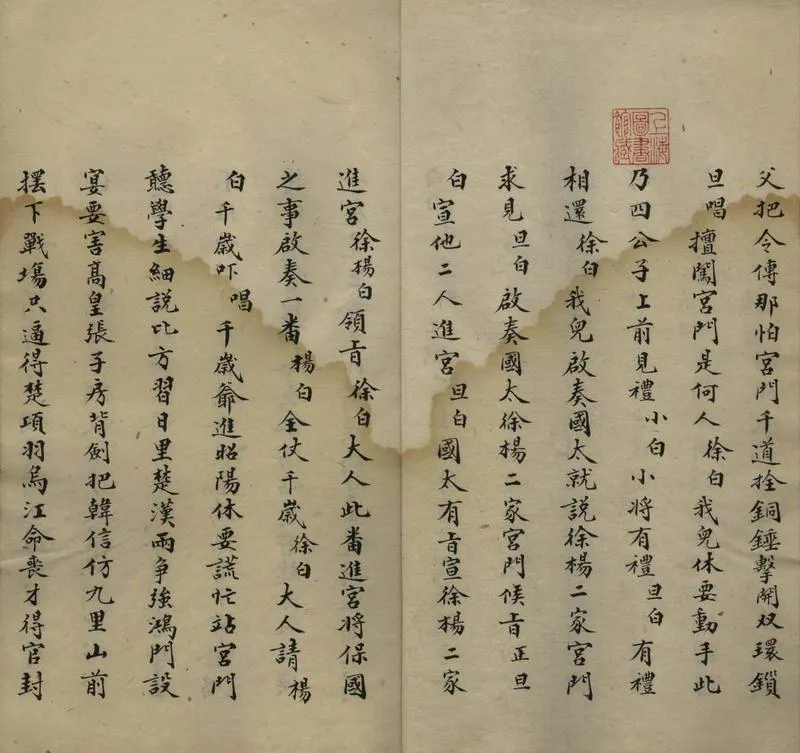 父把令傳那怕宮門千道拴銅錘擊開双環鎖
旦唱 擅闖宮門是何人 徐白 我兒休要動手此
乃四公子上前見禮 小白 小將有禮 旦白 有禮
相還 徐白 我兒啟奏國太就說徐楊二家宮門
求見 旦白 啟奏國太徐楊二家宮門候旨 正旦
白 宣他二人進宮 旦白 國太有旨宣徐楊二家
進宮 徐楊白 領旨 徐白 大人此番進宮將保國
之事啟奏一番 楊白 全仗千歲 徐白 大人請 楊
白 千歲吓 唱 千歲爺進昭陽休要謊忙站宮門
聽學生細說比方習日里楚漢兩争強鴻門設
宴要害高皇張子房背劍把韓信仿九里山前
擺下戰塲只逼得楚項羽烏江命喪才得官封
上海圖書館藏